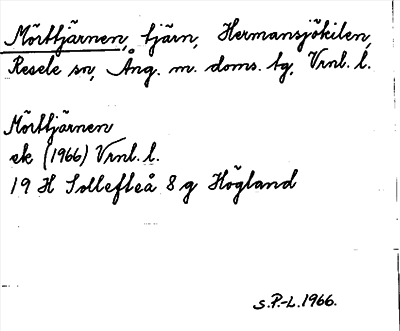 Mörttjärnen, tjärn, Hermansjökilen,
Resele sn, Ång. m. doms. tg, Vrnl. l.
Mörttjärnen
ek (1966) Vrnl. l.
19 H Sollefteå 8 g Högland
S.P.-L. 1966.